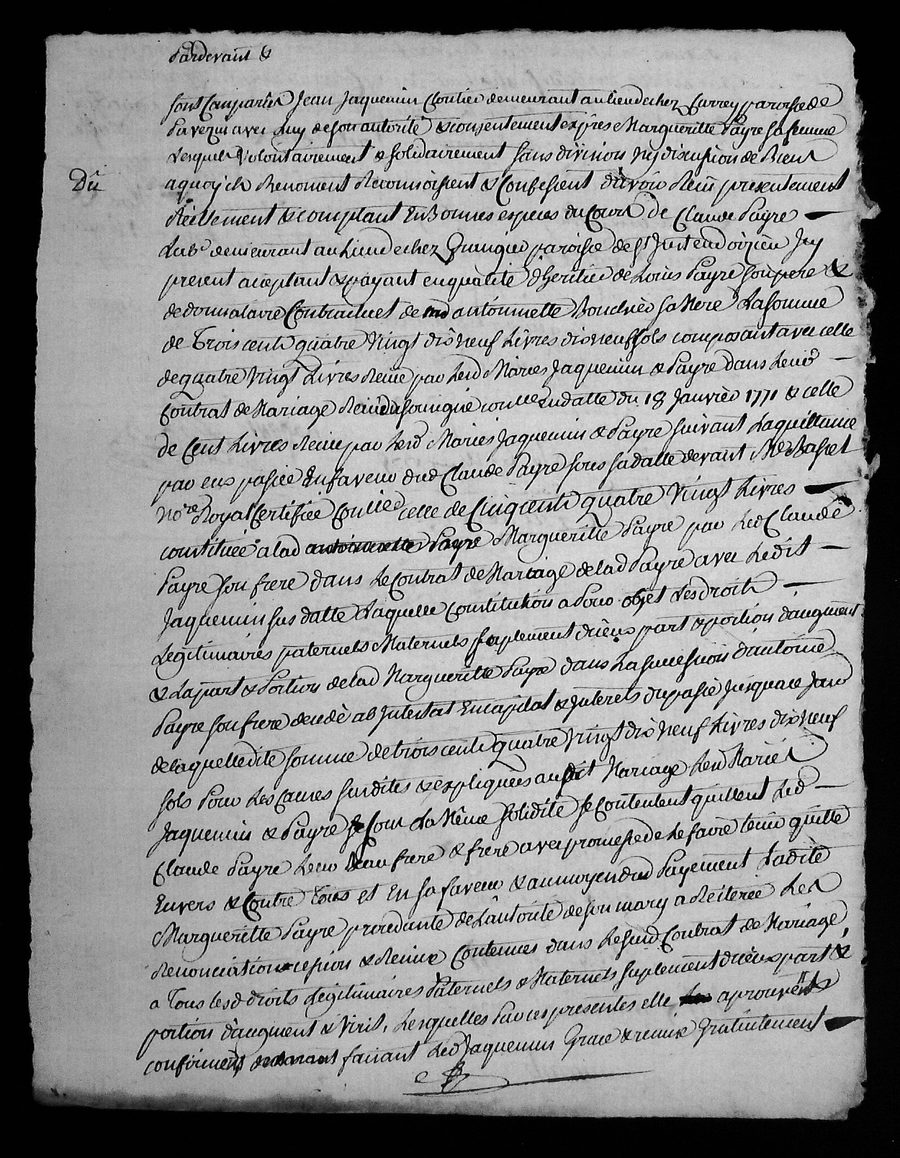 Pardevant &
sont Comparus Jean Jaquemin Cloutier demeurant au lieu de chez Currey paroisse de
Savezin avec luy de son autorité & consentement expres Margueritte Payre sa femme
Lesquels volontairement & solidairement sans division ny discusion de Biens
Du
aquoy ils Renoncent Reconnoissent & Confessent davoir Reçu presentement
Réellement & comptant En Bonnes especes du Cours de Claude Payre
Lab.r demeurant au Lieu de chez Grangeo paroisse de St Just en doizieu Icy
present aceptant & payant en qualité d'heritier de Louis Payre son pere &
de donnataire Contractuel de antoinnette Bouchrée sa Mere La somme
de Trois cents quatre Vingt dix neuf Livres dix neuf sols composant avec celle
de quatre Vingt Livres Recue par Lesd Mariés Jaquemin & Payre dans Leur
Contrat de Mariage Recu du soussigné En datte du 18 Janvier 1771 & celle
de Cent Livres Recue par Lesd Mariés Jaquemin & Payre suivant La quittance
par eux passée En faveur dud Claude Payre sous sa datte devant Me Basset
No.re Royal Certifiée Con.lée celle de Cinq cents quatre Vingt Livres
constituée a lad Margueritte Payre par Led Claude
Payre son frere dans Le Contrat de Mariage de lad Payre avec Ledit
Jaquemin sus datté Laquelle Constitution a Pour objet Les droits
Legitimaires paternels Maternels suplement diceux part & portion d'augment
& La part & Portion de lad Margueritte Payre dans La succession d'antoine
Payre son frere decedé ab Intestat En capital & Interets du passé jusqua ce jour
de laquelle dite somme de trois cents quatre Vingt dix neuf Livres dix neuf
sols Pour Les Causes susdites & expliquées audit Mariage Lesd Mariés
Jaquemin & Payre sous La Même solidité se contentent quittent Led
Claude Payre Leur Beau frere & frere avec promesse de Le faire tenir quitte
Envers & Contre Tous et En sa faveur & au moyen dud Payement Ladite
Margueritte Payre procedante de L'autorité de son mary a Reiterée Les
Renonciation cession & Remise Contenues dans Le susd Contrat de Mariage
a Tous lesd droits Legitimaires Paternels & Maternels, suplement diceux part &
portion d'augment & Viril, Lesquelles Par ces presentes elle aprouvent &
confirment faisant Led Jaquemin Grace & remise Gratuitement